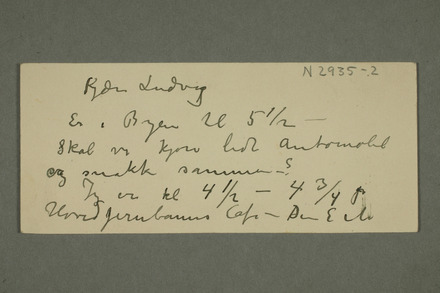 N 2935-2
Kjære Ludvig
Er i Byen til 5 1/2 —
Skal vi kjøre lidt Automobil
og snakke sammen —?
Jeg er kl 4 1/2 — 4 3/4 på
Hovedjernbanens Café — Din E M